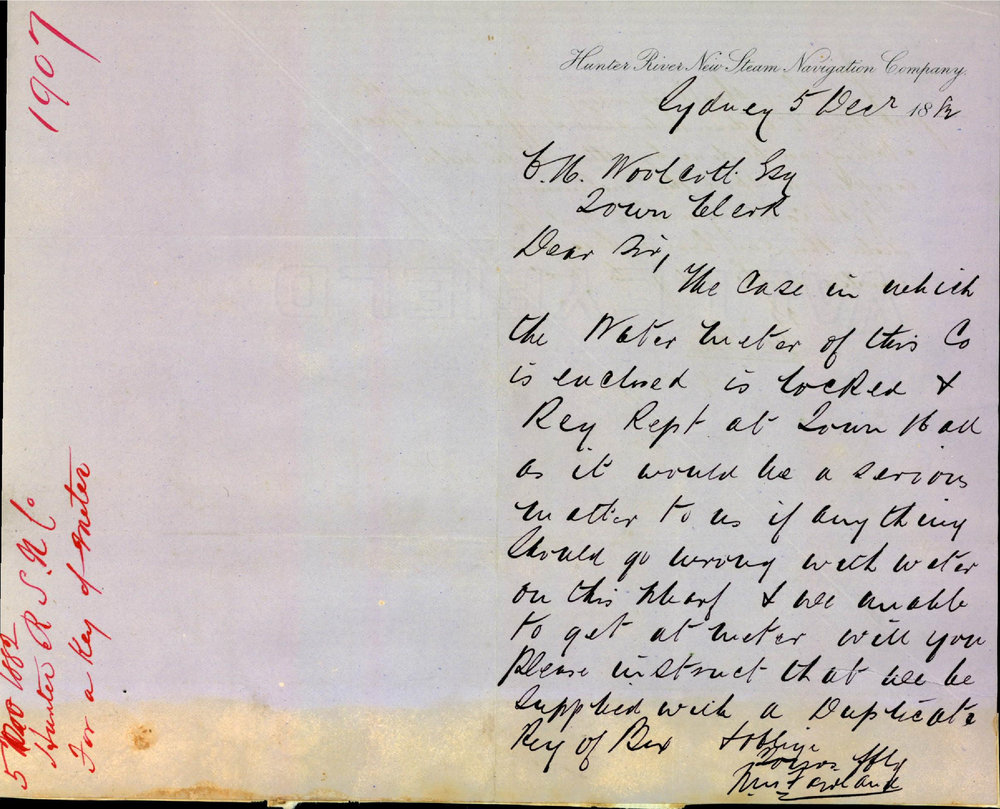 1907
5 Dec 1882
Hunter R S. N Co
For a key of meter
Hunter River New Steam Navigation Company.
Sydney 5 Decr 1882
C. H. Woolcott Esq
Town Clerk
Dear Sir,
The Case in which
the Water meter of this Co
is enclosed is locked &
Key Kept at Town Hall
as it would be a serious
matter to us if anything
should go wrong with water
on this Wharf & we unable
to get at meter will you
please instruct that we be
supplied with a Duplicate
Key of Box & oblige
Yours ffly